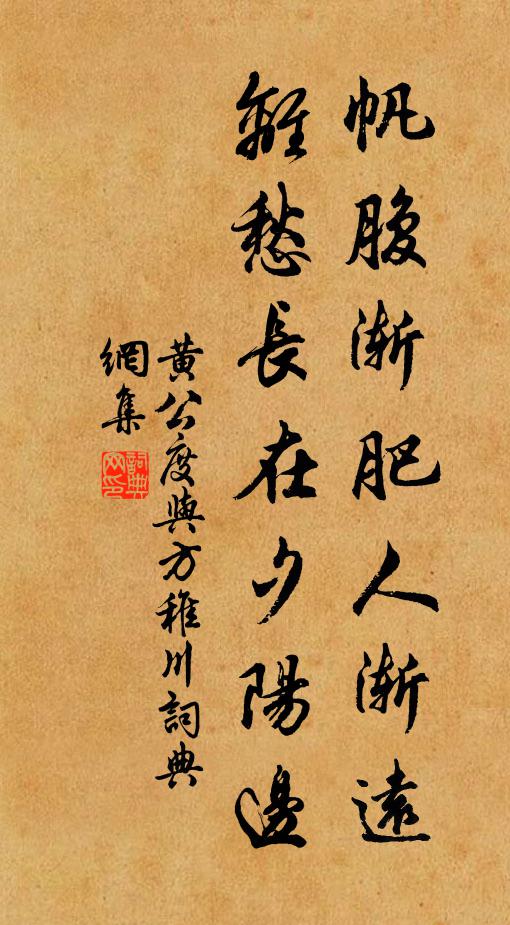 帆腹漸肥人漸遠
離愁長在夕陽邊
黄公度與方稚川詞典
網集
詞典網印